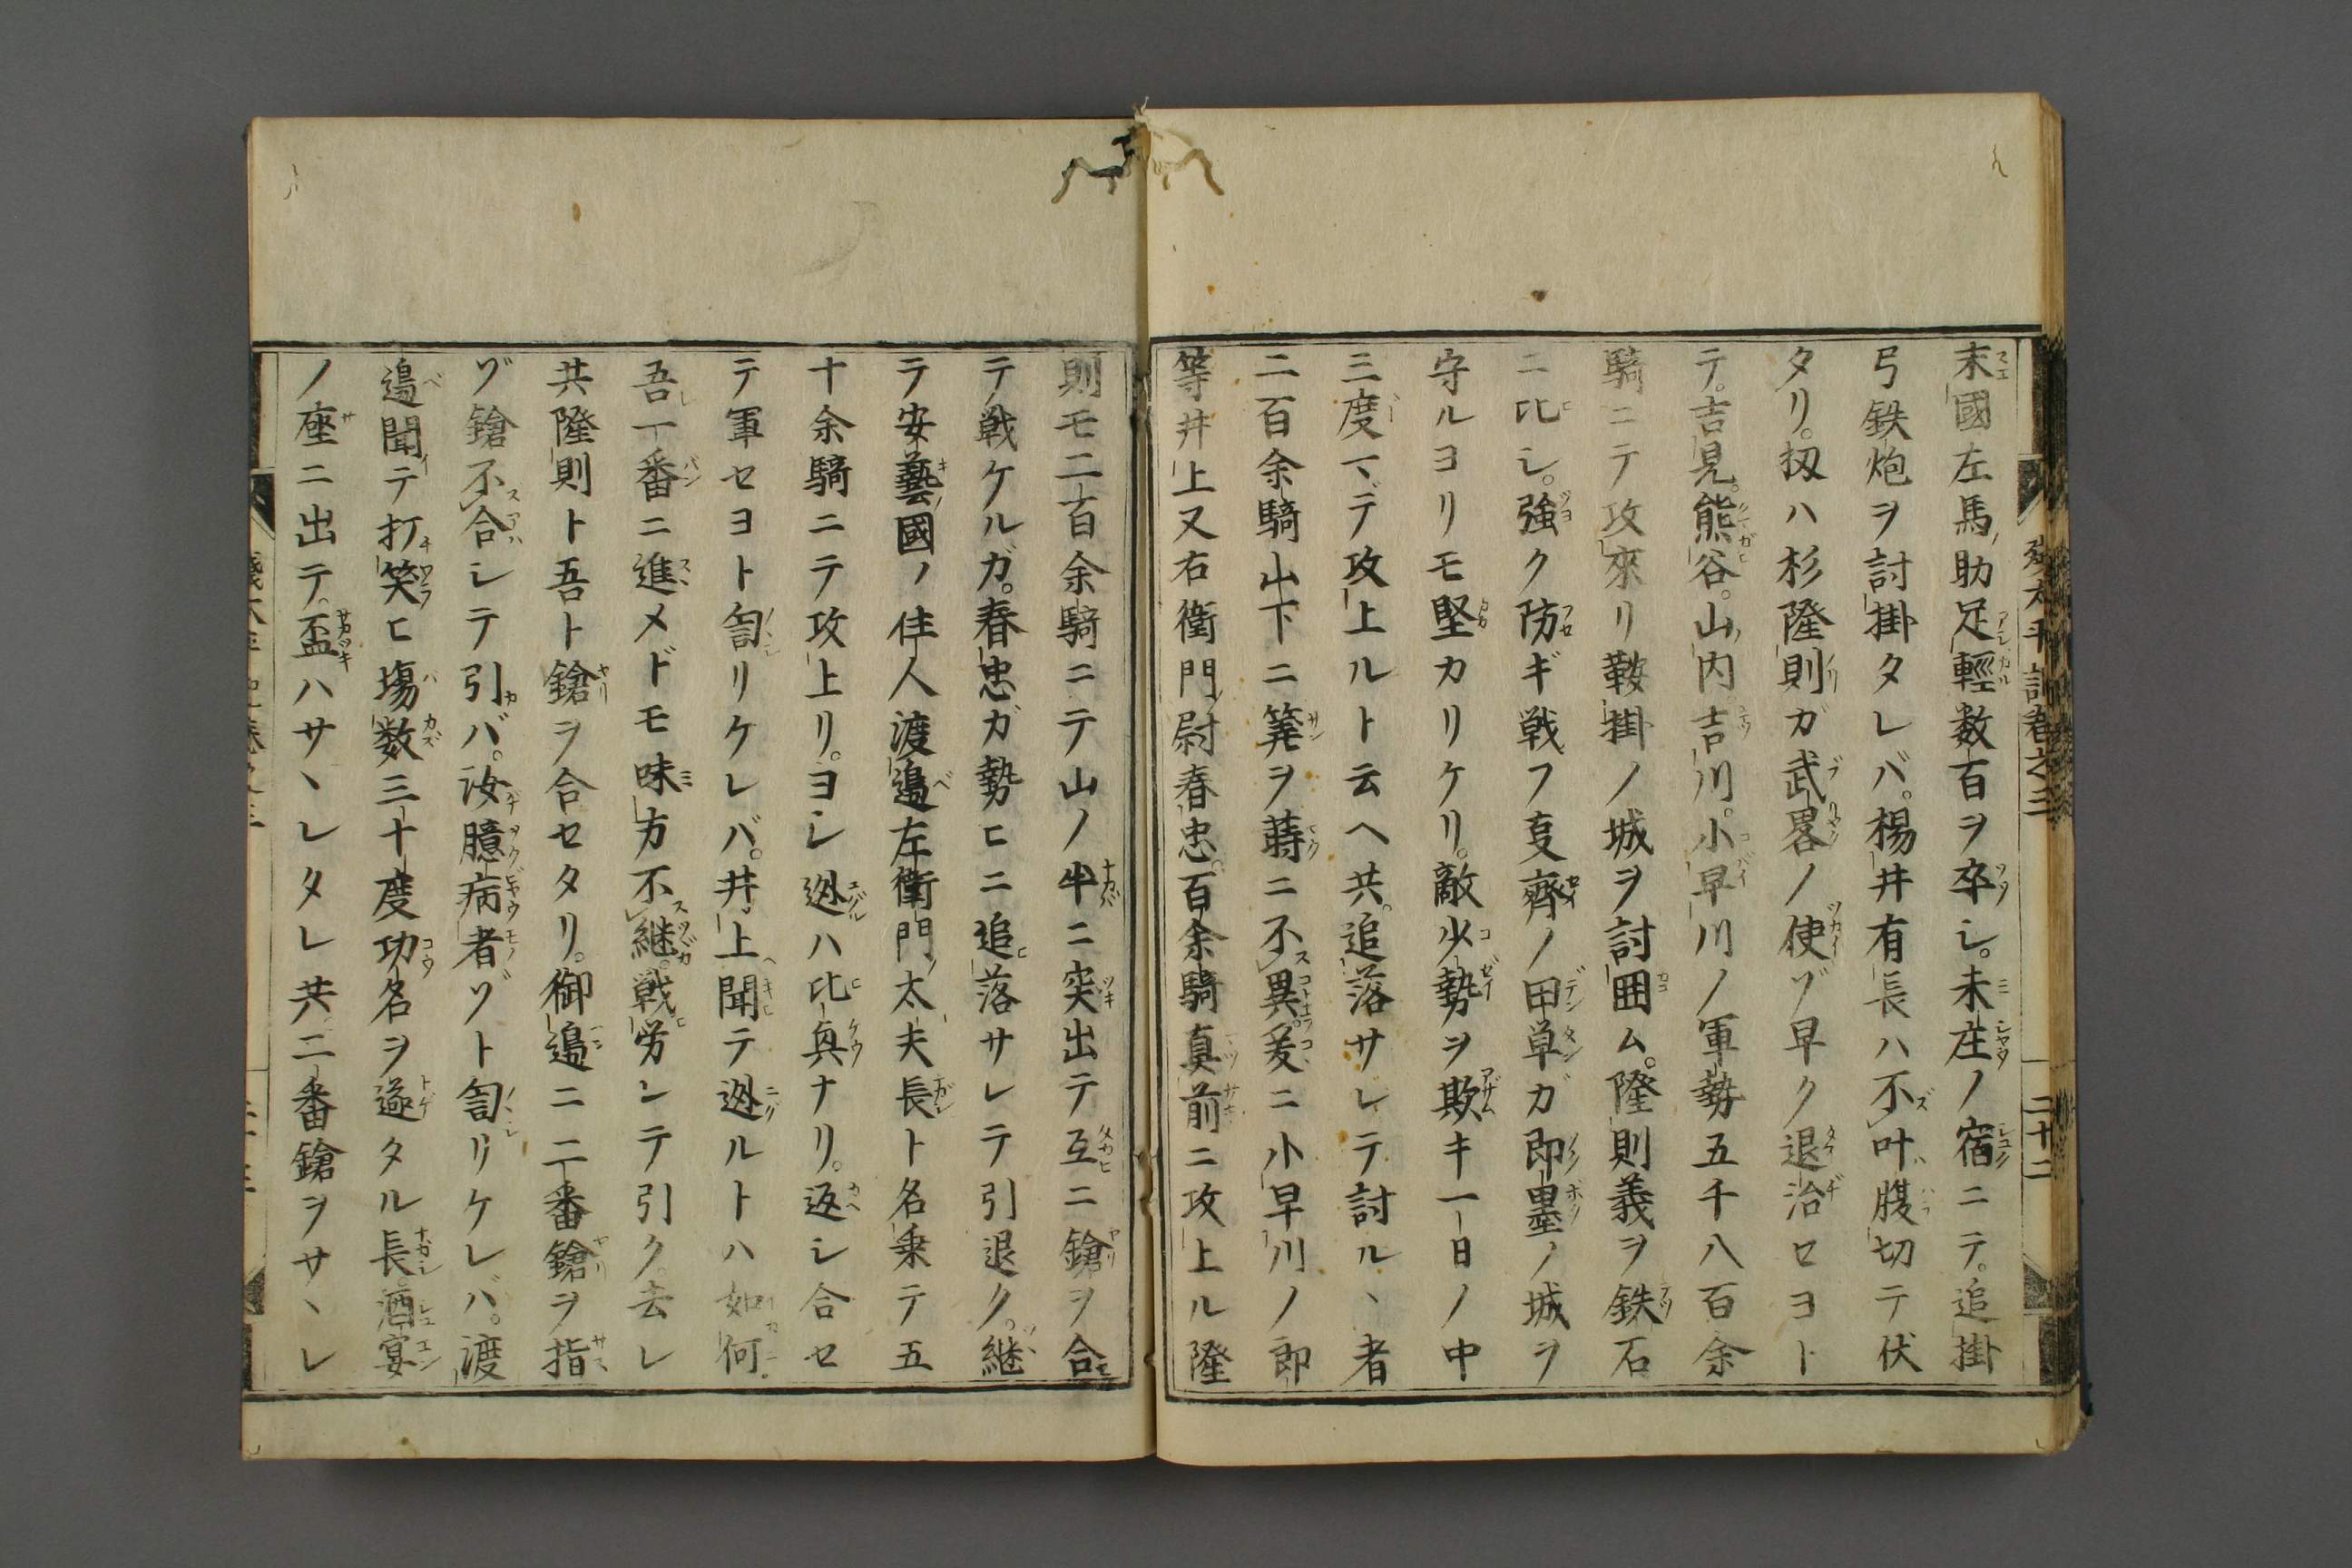 末國左馬助足輕数百ヲ卒シ。未庄ノ宿ニテ。追掛
弓鉄炮ヲ討掛タレバ。楊井有長ハ不叶腹切テ伏
タリ。扨ハ杉隆則ガ武畧ノ使ゾ早ク退治セヨト
テ。吉見。熊谷。山内吉川。小早川ノ軍勢五千八百余
騎ニテ攻來リ鞍掛ノ城ヲ討囲ム。隆則義ヲ鉄石
ニ比シ。強ク防ギ戦フ叓齊ノ田単ガ即墨ノ城ヲ
守ルヨリモ堅カリケリ。敵少勢ヲ欺キ一日ノ中
三度マデ攻上ルト云ヘ共。追落サレテ討ルヽ者
二百余騎山下ニ筭ヲ蒔ニ不異。爰ニ小早川ノ郎
等井上又右衛門尉春忠。百余騎真前ニ攻上ル隆
則モ二百余騎ニテ山ノ半ニ突出テ互ニ鎗ヲ合
テ戦ケルガ。春忠ガ勢ヒニ追落サレテ引退ク。継
テ安藝國ノ住人渡邉左衛門太夫長ト名乗テ五
十余騎ニテ攻上リ。ヨシ迯ハ比興ナリ。返シ合セ
テ軍セヨト訇リケレバ。井上聞テ迯ルトハ如何
吾一番ニ進メドモ味方不継。戦労シテ引ク。去レ
共隆則ト吾ト鎗ヲ合セタリ。御邉ニ二番鎗ヲ指
ゾ鎗不合シテ引バ。汝臆病者ゾト訇リケレバ。渡
邉聞テ打笑ヒ場数三十度功名ヲ遂タル長。酒宴
ノ座ニ出テ。盃ハサヽレタレ共二番鎗ヲサヽレ
殘太平記卷之三
二十二